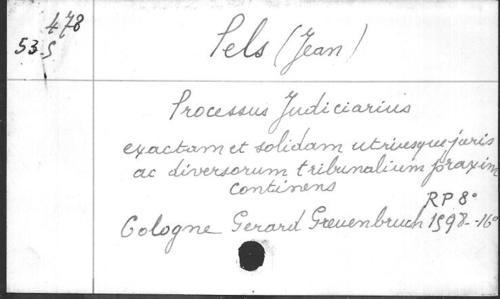 478
53.S
Pels (Jean)
Processus Judiciarius
exactam et solidam utriusque juris
ac diversorum tribunalium praxim
continens
RP 8°
Cologne Gerard Grevenbruch 1598 - 16°